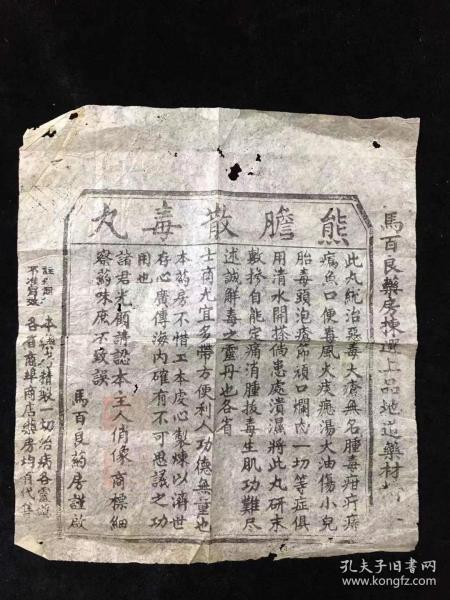 熊膽散毒丸
馬百良藥房揀選上品地道藥材
此丸統治惡毒大瘡無名腫毒疳疔瘰
癘魚口便毒風火痰癧湯火油傷小兒
胎毒頭泡瘡節頑口爛肉一切等症俱
用清水開搽倘患處潰濕將此丸研末
數摻自能定痛消腫拔毒生肌功難尽
述誠解毒之靈丹也各省
士商尤宜多帶方便利人功德無量也
本葯房不惜工本虔心製煉以濟世
存心廣傳海內確有不可思議之功
用也
諸君光顧請認本主人俏像商標細
察葯味庶不致誤
馬百良葯房謹啟
註册商
不准冒效
各省商埠商店葯房均有代售
孔夫子旧书网
www.kongfz.com